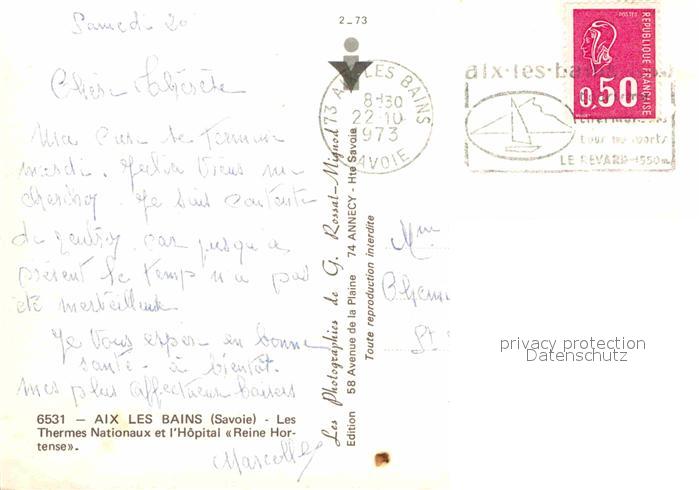 Samedi 20
Chère
Ma cure se termine
mardi. vient me
chercher. Je suis contente
de rentrer car jusqu'à
présent le temps n'a pas
été merveilleux.
Je vous espère en bonne
santé - à bientôt.
mes plus affectueux baisers
Marcelle
6531 — AIX LES BAINS (Savoie) - Les
Thermes Nationaux et l'Hôpital «Reine Hor-
tense».
2_73
Les Photographies de G. Rossat-Mignod
Edition 58 Avenue de la Plaine 74 ANNECY - Hte Savoie
Toute reproduction interdite
73 AIX LES BAINS
8-30
22-10
1973
SAVOIE
aix-les-bains
tous les sports
LE REVARD-1550m
POSTES
REPUBLIQUE FRANÇAISE
0,50
Mme
St
privacy protection
Datenschutz